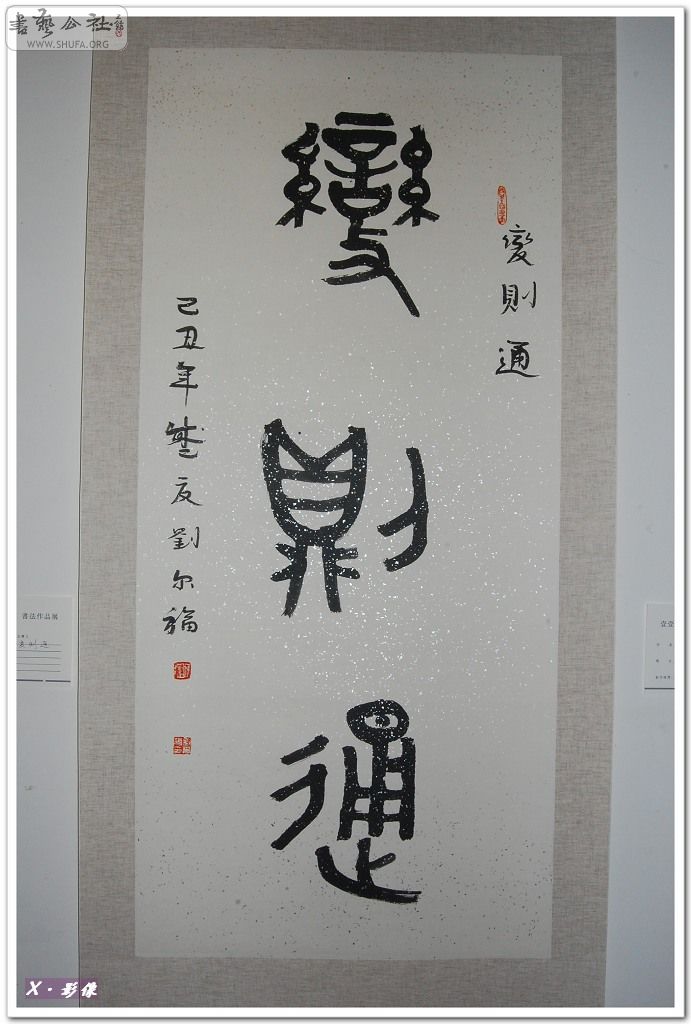 書藝公社
WWW.SHUFA.ORG
變則通
變則通
己丑年
友劉尔福
書法作品展
X·影像